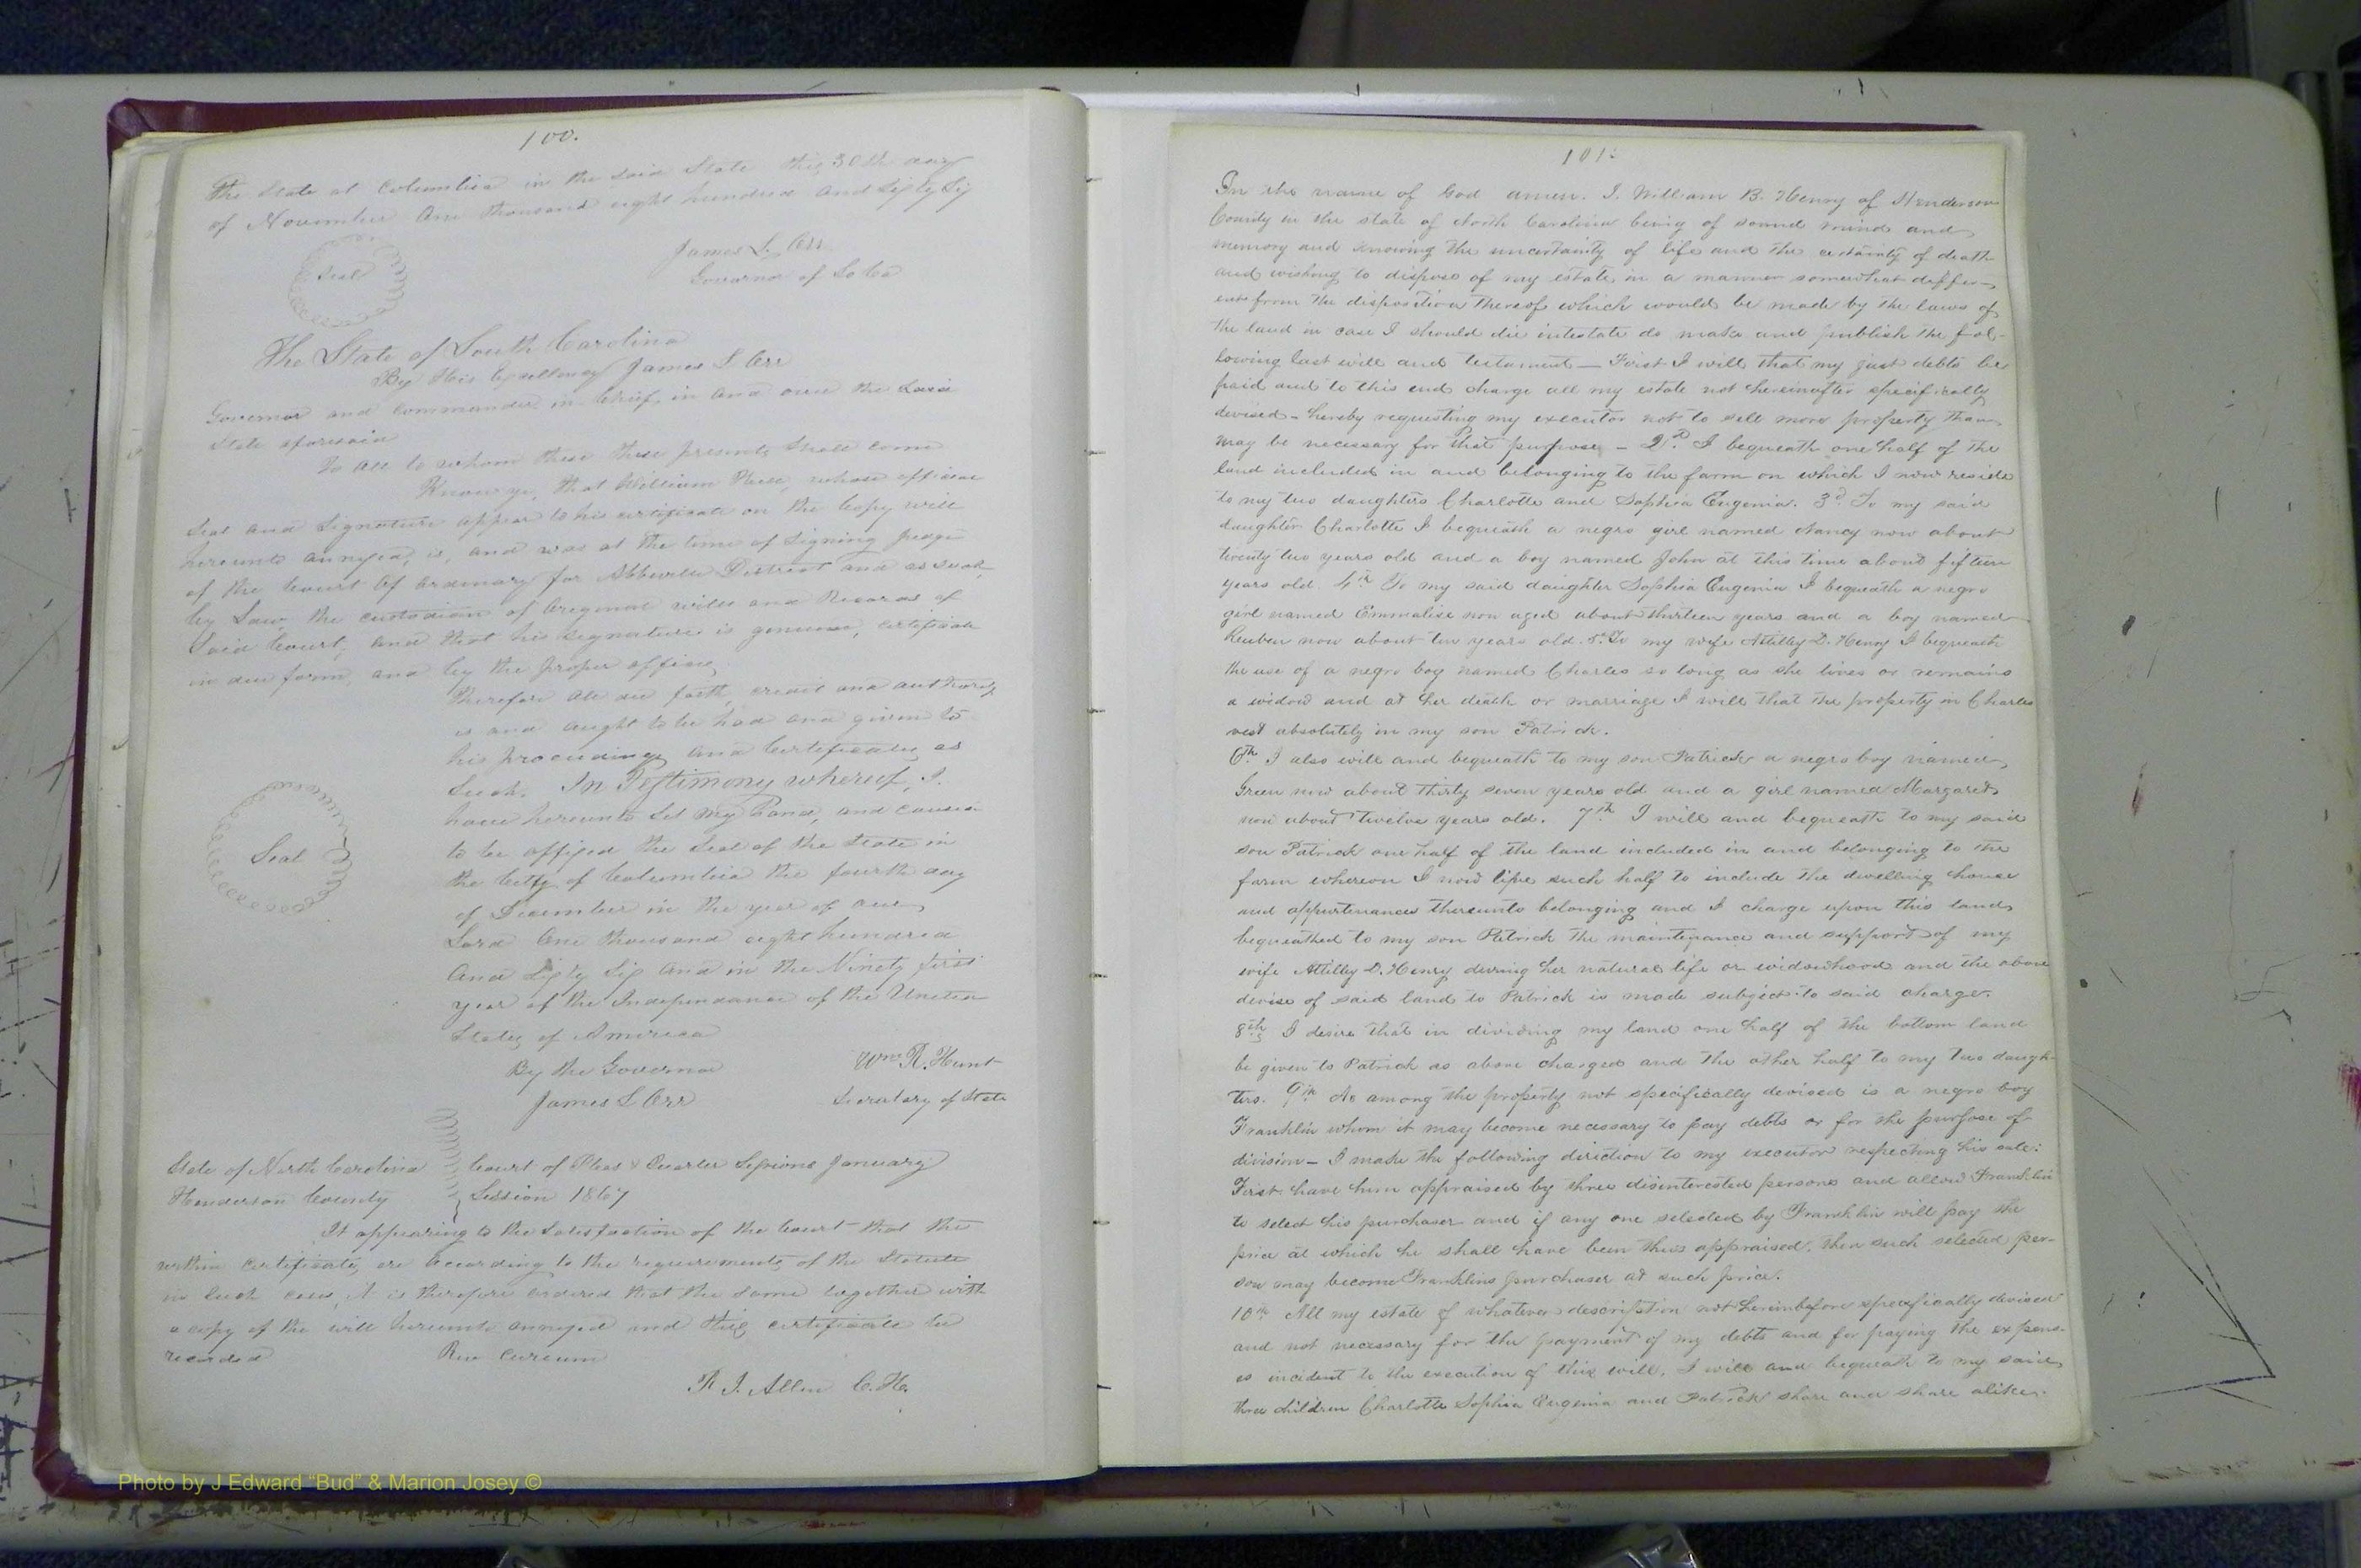 100.
The State at Columbia in the said State this 30th day
of November One thousand eight hundred and Sixty Six
James L. Orr
Governor of So Ca
Seal
The State of South Carolina
By His Excellency James L Orr
Governor and Commander in Chief, in and over the
State aforesaid
To all to whom these these presents, Shall come
Know ye, that William Hill, whose official
Seal and Signature appear to his certificate on the Copy will
hereunto annexed, is, and was at the time of Signing Judge
of the Court Of Ordinary for Abbeville District and as such,
by Law, the custodian of Original wills and Records of
Said Court, and that his signature is genuine, certificate
in due form, and by the proper officer
Therefore all due faith, credit and authority
is and ought to be had and given to
his proceedings and Certificates as
Such. In Testimony whereof, I.
have hereunto Set my hand, and caused
to be affixed the Seal of the State in
the City of Columbia the fourth day
of December in the year of our
Seal
Lord One thousand eight hundred
And Sixty Six and in the Ninety first
year of the Independance of the United
States of America
By the Governor
Wm R. Hunt
James L Orr
Secretary of State
State of North Carolina Court of Pleas & Quarter Sessions January
Henderson County Session 1867
It appearing to the Satisfaction of the Court that the
within Certificates are According to the requirements of the Statute
in Such cases, it is therefore ordered that the same together with
a copy of the will hereunto annexed and this certificate be
recorded
R J. Allen
101.
In the name of God amen. I. William B. Henry of Henderson
County in the state of North Carolina being of sound mind and
memory and knowing the uncertainty of life and the certainty of death
and wishing to dispose of my estate in a manner somewhat differ-
ent from the disposition thereof which would be made by the laws of
the land in case I should die intestate do make and publish the fol-
lowing last will and testament — First I will that my just debts be
paid and to this end charge all my estate not hereinafter specifically
devised - hereby requesting my executor not to sell more property than
may be necessary for that purpose – 2d. I bequeath one half of the
land included in and belonging to the farm on which I now reside
to my two daughters Charlotte and Sophia Eugenia. 3d. To my said
daughter Charlotte I bequeath a negro girl named Nancy now about
twenty two years old and a boy named John at this time about fifteen
years old. 4th To my said daughter Sophia Eugenia I bequeath a negro
girl named Emmalise now aged about thirteen years and a boy named
Reuben now about ten years old. 5th To my wife Atilley D. Henry I bequeath
the use of a negro boy named Charles so long as she lives or remains
a widow and at her death or marriage I will that the property in Charles
vest absolutely in my son Patrick.
6th I also will and bequeath to my son Patrick a negro boy named
Green now about thirty seven years old and a girl named Margaret
now about twelve years old. 7th I will and bequeath to my said
son Patrick one half of the land included in and belonging to the
farm whereon I now live such half to include the dwelling house
and appurtenances thereunto belonging and I charge upon this land
bequeathed to my son Patrick the maintenance and support of my
wife Atilley D. Henry during her natural life or widowhood and the above
devise of said land to Patrick is made subject to said charge.
8th I desire that in dividing my land one half of the bottom land
be given to Patrick as above charged and the other half to my two daugh-
ters. 9th As among the property not specifically devised is a negro boy
Franklin whom it may become necessary to pay debts or for the purpose of
division – I make the following direction to my executor respecting his sale:
First. have him appraised by three disinterested persons and allow Franklin
to select his purchaser and if any one selected by Franklin will pay the
price at which he shall have been thus appraised, then such selected per-
son may become Franklins purchaser at such price.
10th All my estate of whatever description not hereinbefore specifically devised
and not necessary for the payment of my debts and for paying the expens-
es incident to the execution of this will, I will and bequeath to my said
three children Charlotte Sophia Eugenia and Patrick share and share alike.
Photo by J Edward “Bud” & Marion Josey ©